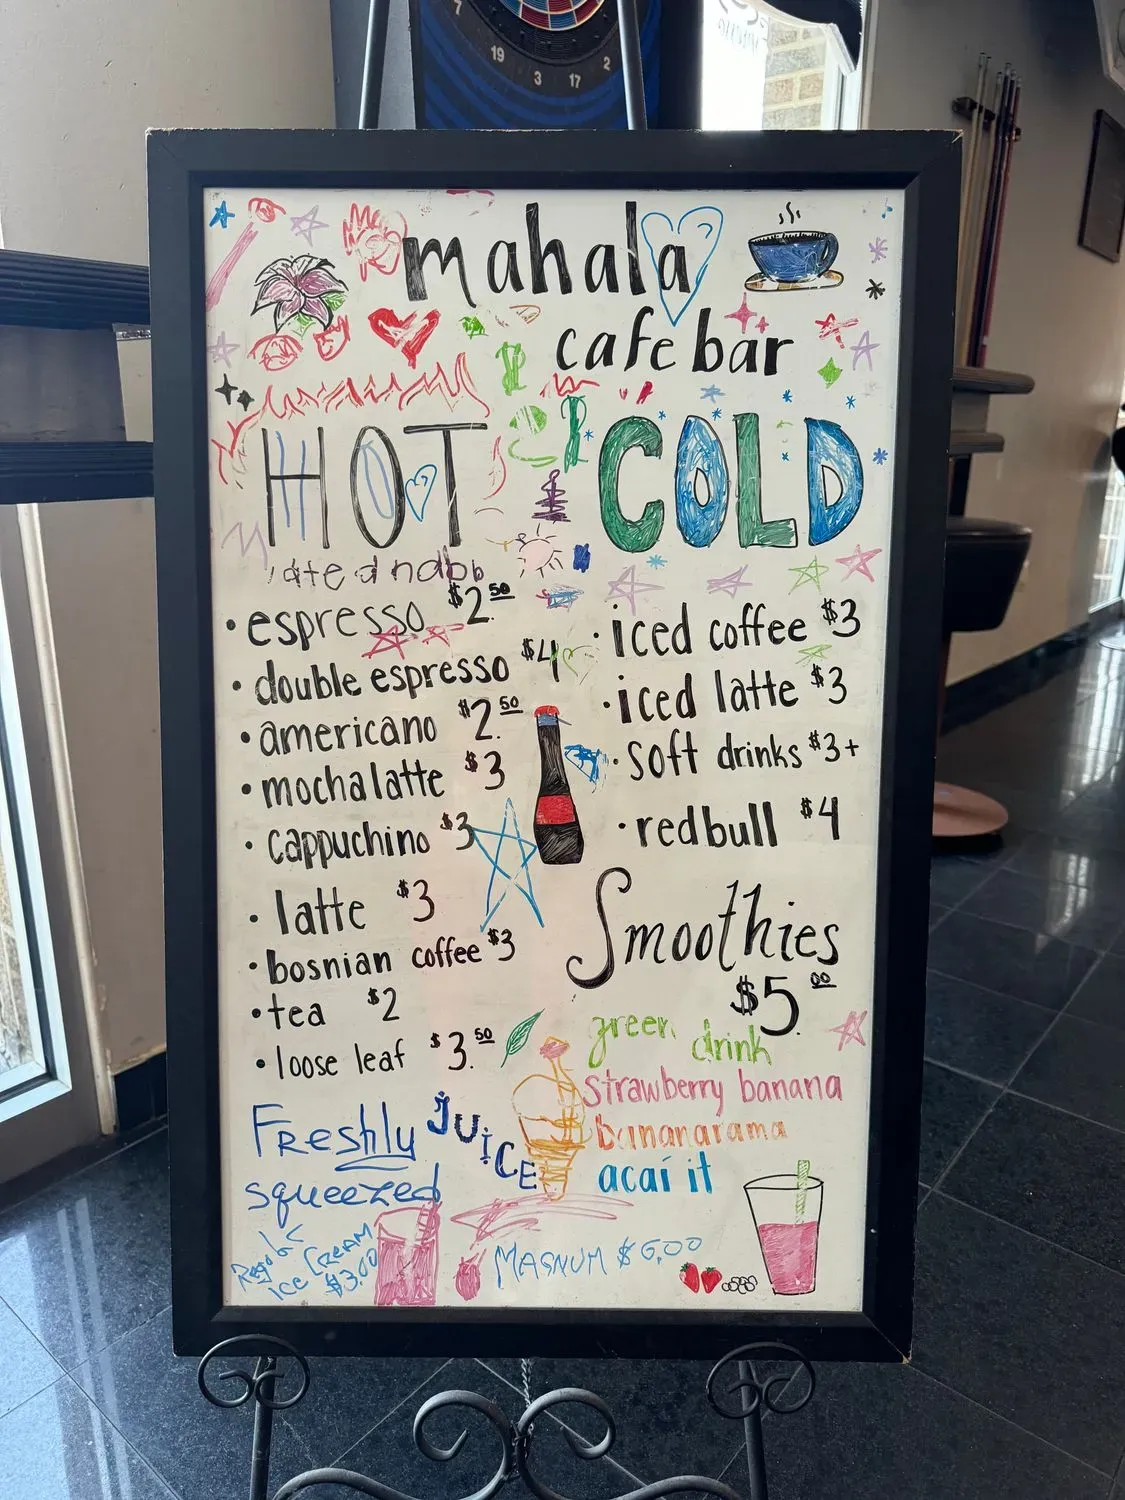 19
3
17
2
7
mahala
cafe bar
HOT
espresso $2.50
double espresso $4
americano $2.50
mocha latte $3
cappuchino $3
latte $3
bosnian coffee $3
tea $2
loose leaf $3.50
Freshly JUiCE
squeezed
ICE CREAM
$3.00
COLD
iced coffee $3
iced latte $3
soft drinks $3+
redbull $4
Smoothies
$5.00
green drink
strawberry banana
bananarama
acaí it
MAGNUM $6,00